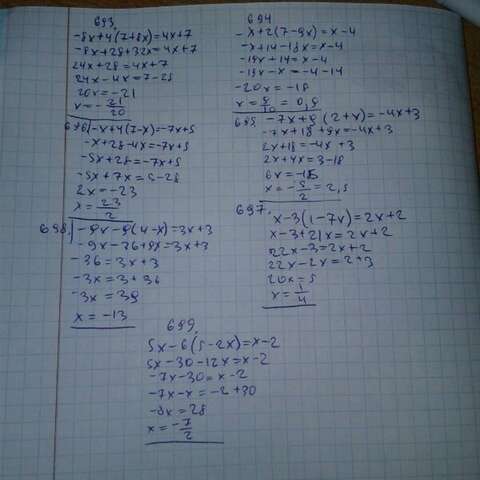 693.
-8x+4(7+8x)=4x+7
-8x+28+32x=4x+7
24x+28=4x+7
24x-4x=7-28
20x=-21
x=-21/20
694
-x+2(7-9x)=x-4
-x+14-18x=x-4
-19x+14=x-4
-19x-x=-4-14
-20x=-18
x=9/10=0,9
695. -7x+9(2+x)=-4x+3
-7x+18+9x=-4x+3
2x+18=-4x+3
2x+4x=3-18
6x=-15
x=-5/2=2,5
696) -x+4(7-x)=-7x+5
-x+28-4x=-7x+5
-5x+28=-7x+5
-5x+7x=5-28
2x=-23
x=23/2
697.
x-3(1-7x)=2x+2
x-3+21x=2x+2
22x-3=2x+2
22x-2x=2+3
20x=5
x=1/4
698.) -9x-9(4-x)=3x+3
-9x-36+9x=3x+3
-36=3x+3
-3x=3+36
-3x=39
x=-13
699.
5x-6(5-2x)=x-2
5x-30-12x=x-2
-7x-30=x-2
-7x-x=-2+30
-8x=28
x=-7/2